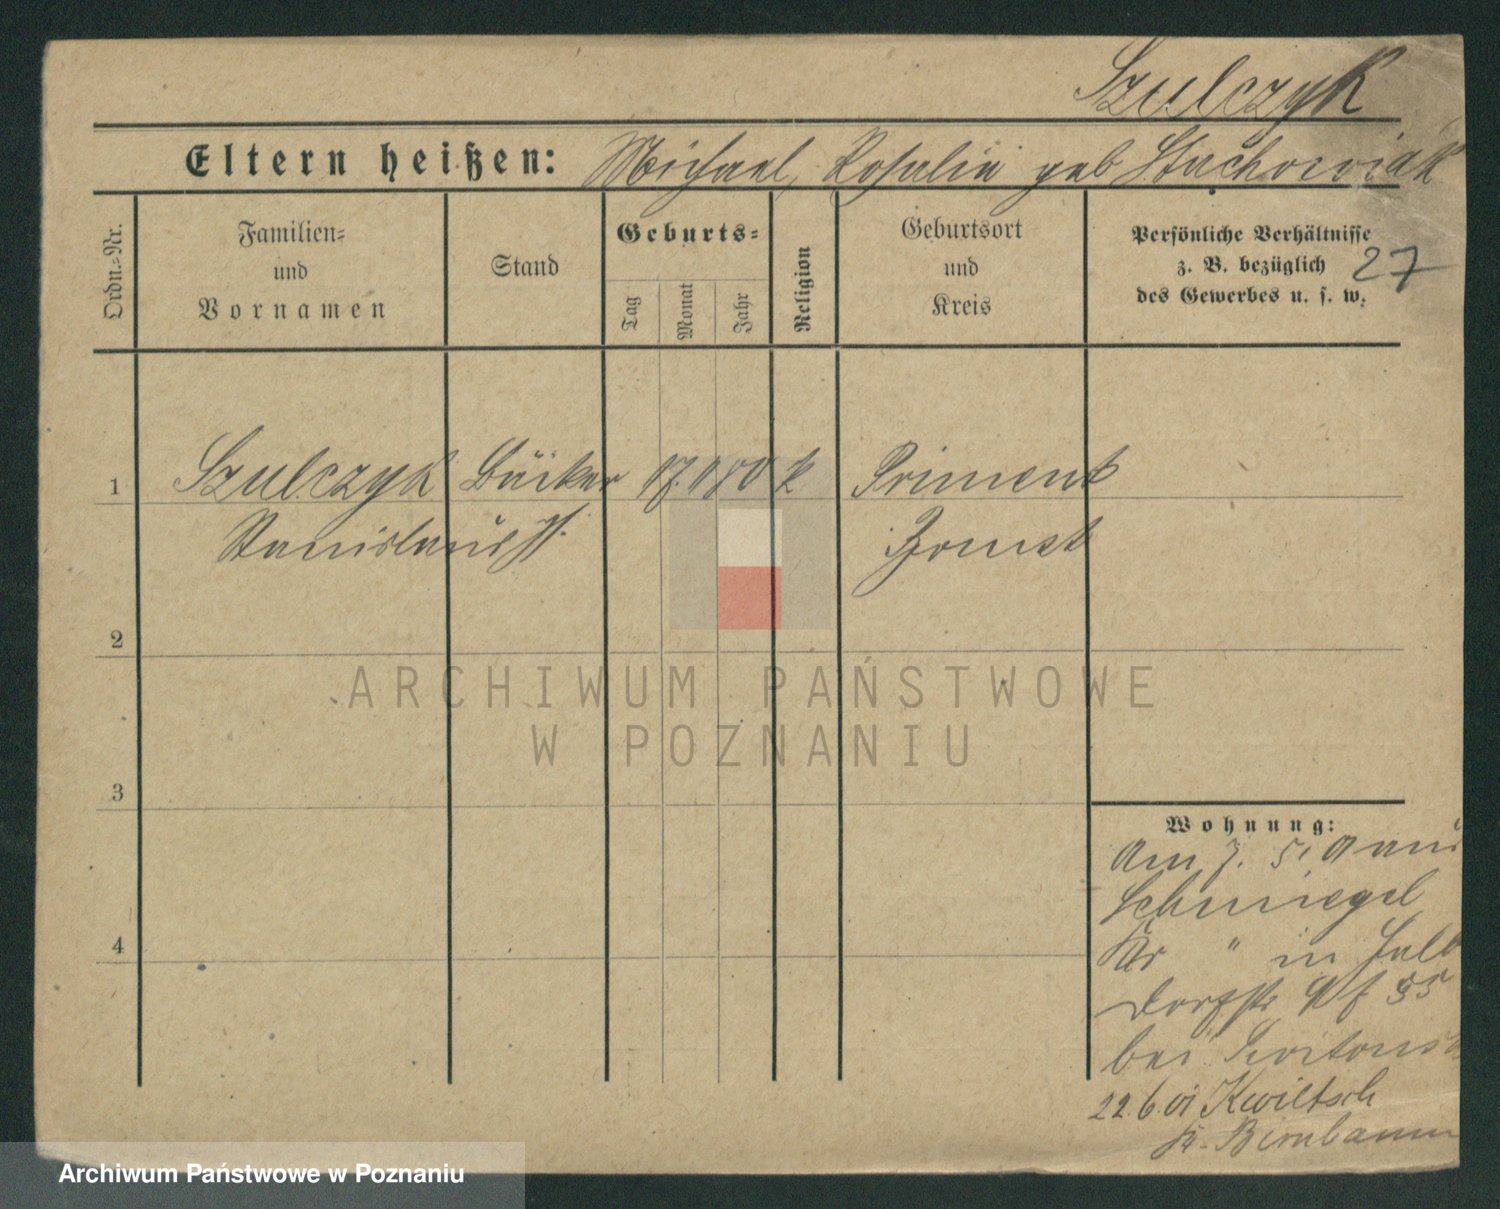 Szulczyk
Eltern heißen: Michael, Rosalie geb Stachowiak
Ordn.-Nr.
Familien-
und
Vornamen
Stand
Geburts-
Tag
Monat
Jahr
Religion
Geburtsort
und
Kreis
Persönliche Verhältnisse
z. B. bezüglich
des Gewerbes u. s. w.
27
1
Szulczyk Bäcker 80 k Priment
Stanislaus Bomst
2
ARCHIWUM PAŃSTWOWE
W POZNANIU
3
Wohnung:
Am 7. 5. aus
Schmiegel
Kr " in
Dorfstr 35
bei
22.6.01 Kwiltsch
Kr. Birnbaum
4
Archiwum Państwowe w Poznaniu